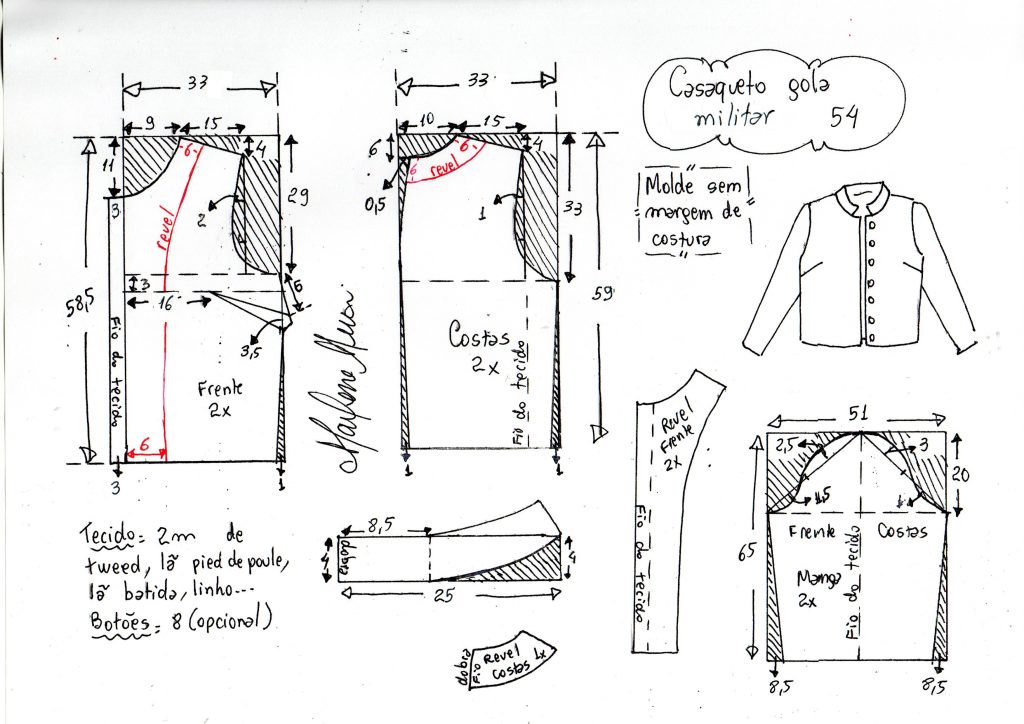 Casaqueto gola
militar 54
Molde sem
margem de
costura
33
9
15
11
4
3
2
29
revel
6
58,5
3
16
6
3,5
Fio do tecido
Frente
2x
6
3
1
Marlene Mukai
33
10
15
6
4
6
6
revel
0,5
1
33
59
Costas
2x
Fio do tecido
1
1
Tecido = 2m de
tweed, lã pied de poule,
lã batida, linho...
Botões = 8 (opcional)
8,5
4
dobra
4
25
dobra
Fio
Revel
Costas 1x
Revel
Frente
2x
Fio do tecido
51
2,5
3
20
1,5
1
65
Frente
Costas
Manga
2x
Fio do tecido
8,5
8,5